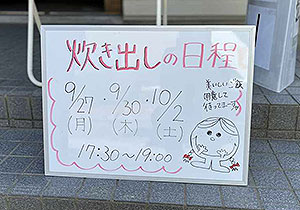 炊き出しの日程
9/27・9/30・10/2
(月) (木) (土)
17:30〜19:00
美味しいご飯
用意して
待ってまーす♪